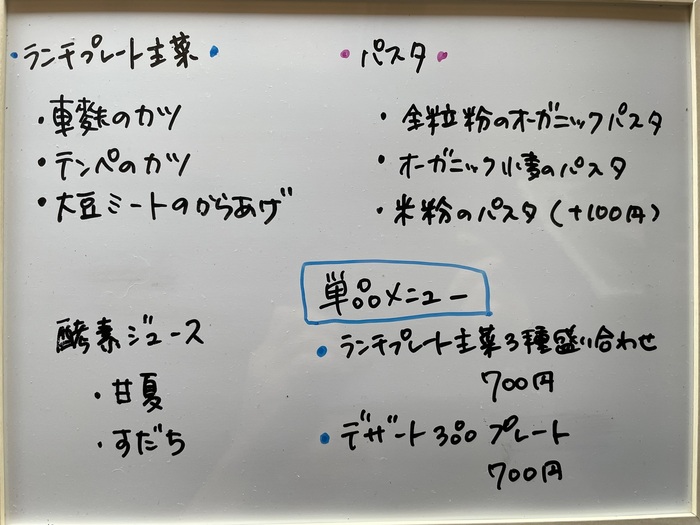 ・ランチプレート主菜・
・車麩のカツ
・テンペのカツ
・大豆ミートのからあげ
・パスタ・
・全粒粉のオーガニックパスタ
・オーガニック小麦のパスタ
・米粉のパスタ(+100円)
酵素ジュース
・甘夏
・すだち
単品メニュー
・ランチプレート主菜3種盛り合わせ
700円
・デザート3品プレート
700円